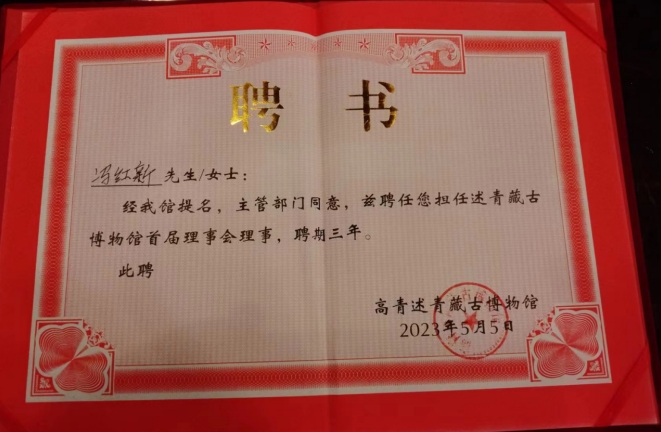 聘 书
冯红新 先生/女士：
经我馆提名，主管部门同意，兹聘任您担任述青藏古
博物馆首届理事会理事，聘期三年。
此聘
高青述青藏古博物馆
2023年5月5日